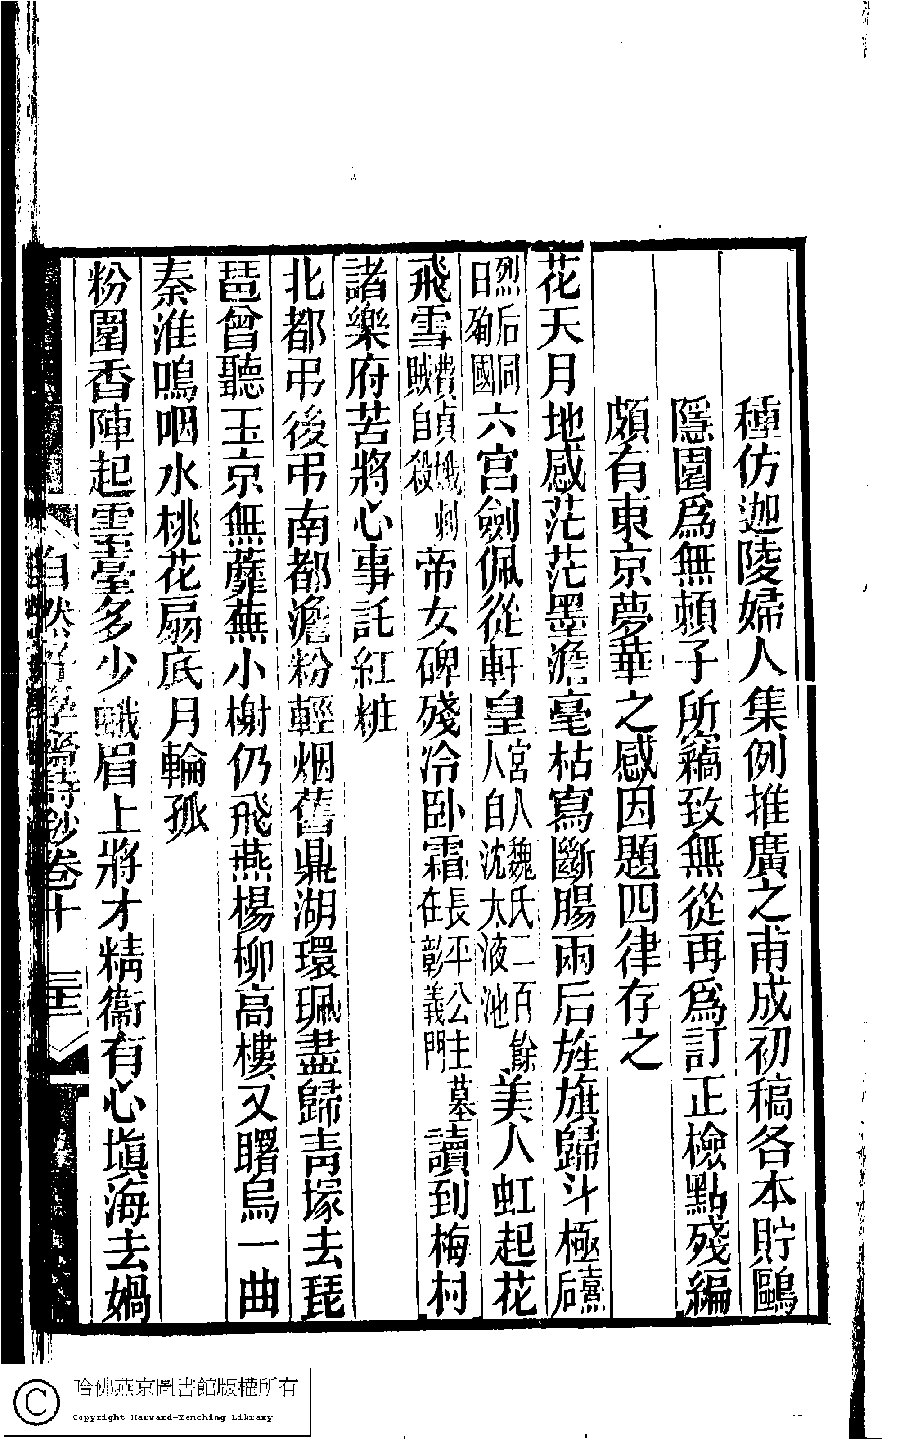 種仿迦陵婦人集例推廣之甫成初稿各本貯鷗
隱園爲無賴子所竊致無從再爲訂正檢點殘編
頗有東京夢華之感因題四律存之
花天月地感茫茫墨澹毫枯寫斷腸兩后旌旗歸斗極熹后
烈后同日殉國六宮劍佩從軒皇宮人魏氏二百餘人自沈太液池美人虹起花
飛雪費貞娥刺賊自殺帝女碑殘冷臥霜長平公主墓在彰義門讀到梅村
諸樂府苦將心事託紅粧
北都弔後弔南都澹粉輕烟舊鼎湖環珮盡歸靑塚去琵
琶曾聽玉京無蘼蕪小榭仍飛燕楊柳高樓又曙烏一曲
秦淮嗚咽水桃花扇底月輪孤
粉圍香陣起雲臺多少蛾眉上將才精衞有心塡海去媧
自然好學齋詩鈔卷十
哈佛燕京圖書館版權所有
Copyright Harvard-Yenching Library